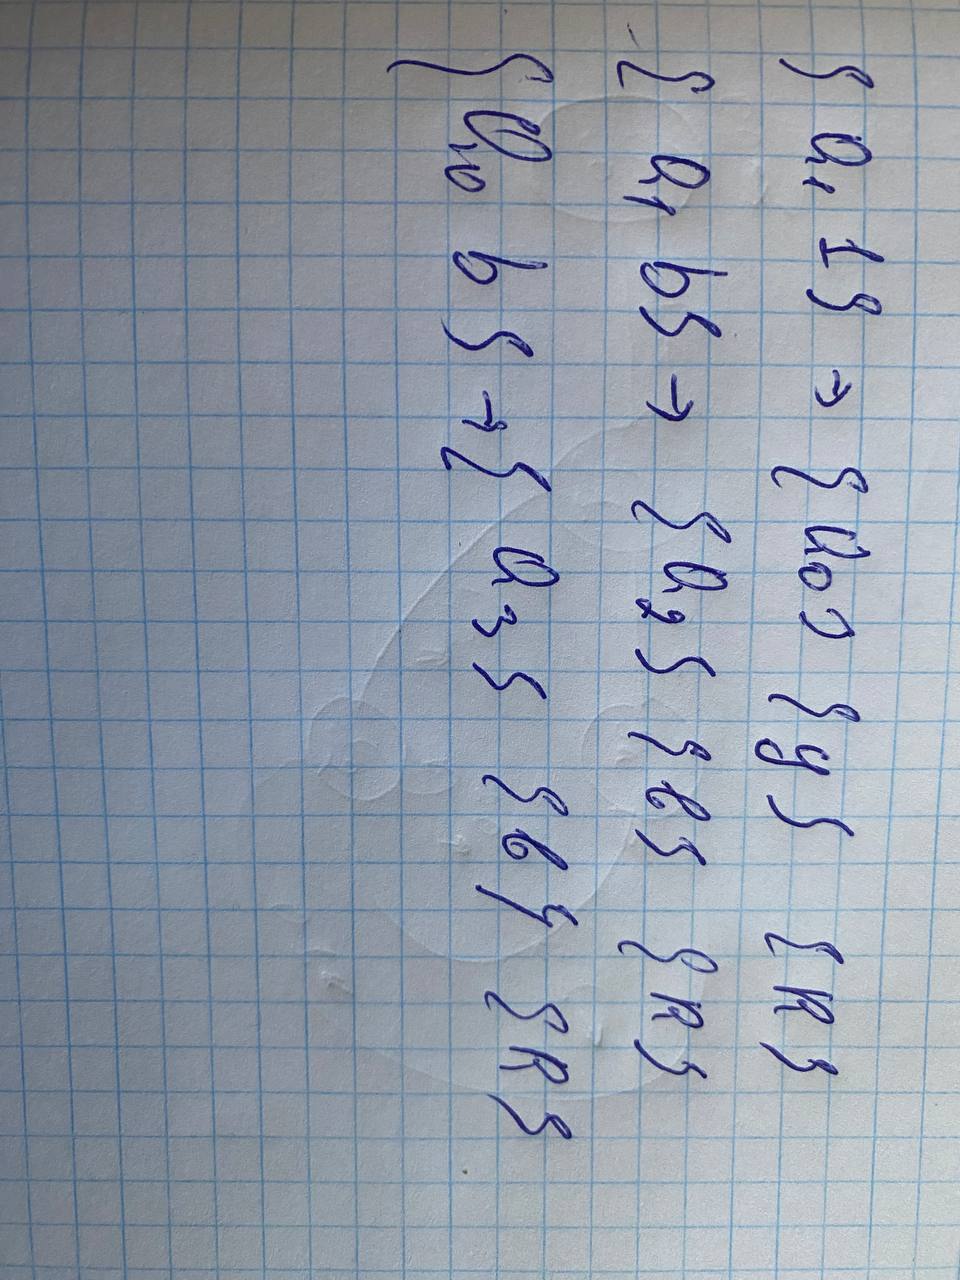 { a₁ 1 } → { a₀ } { y } { R }
{ a₁ b } → { a₂ } { b } { R }
{ a₁₀ b } → { a₃ } { b } { R }